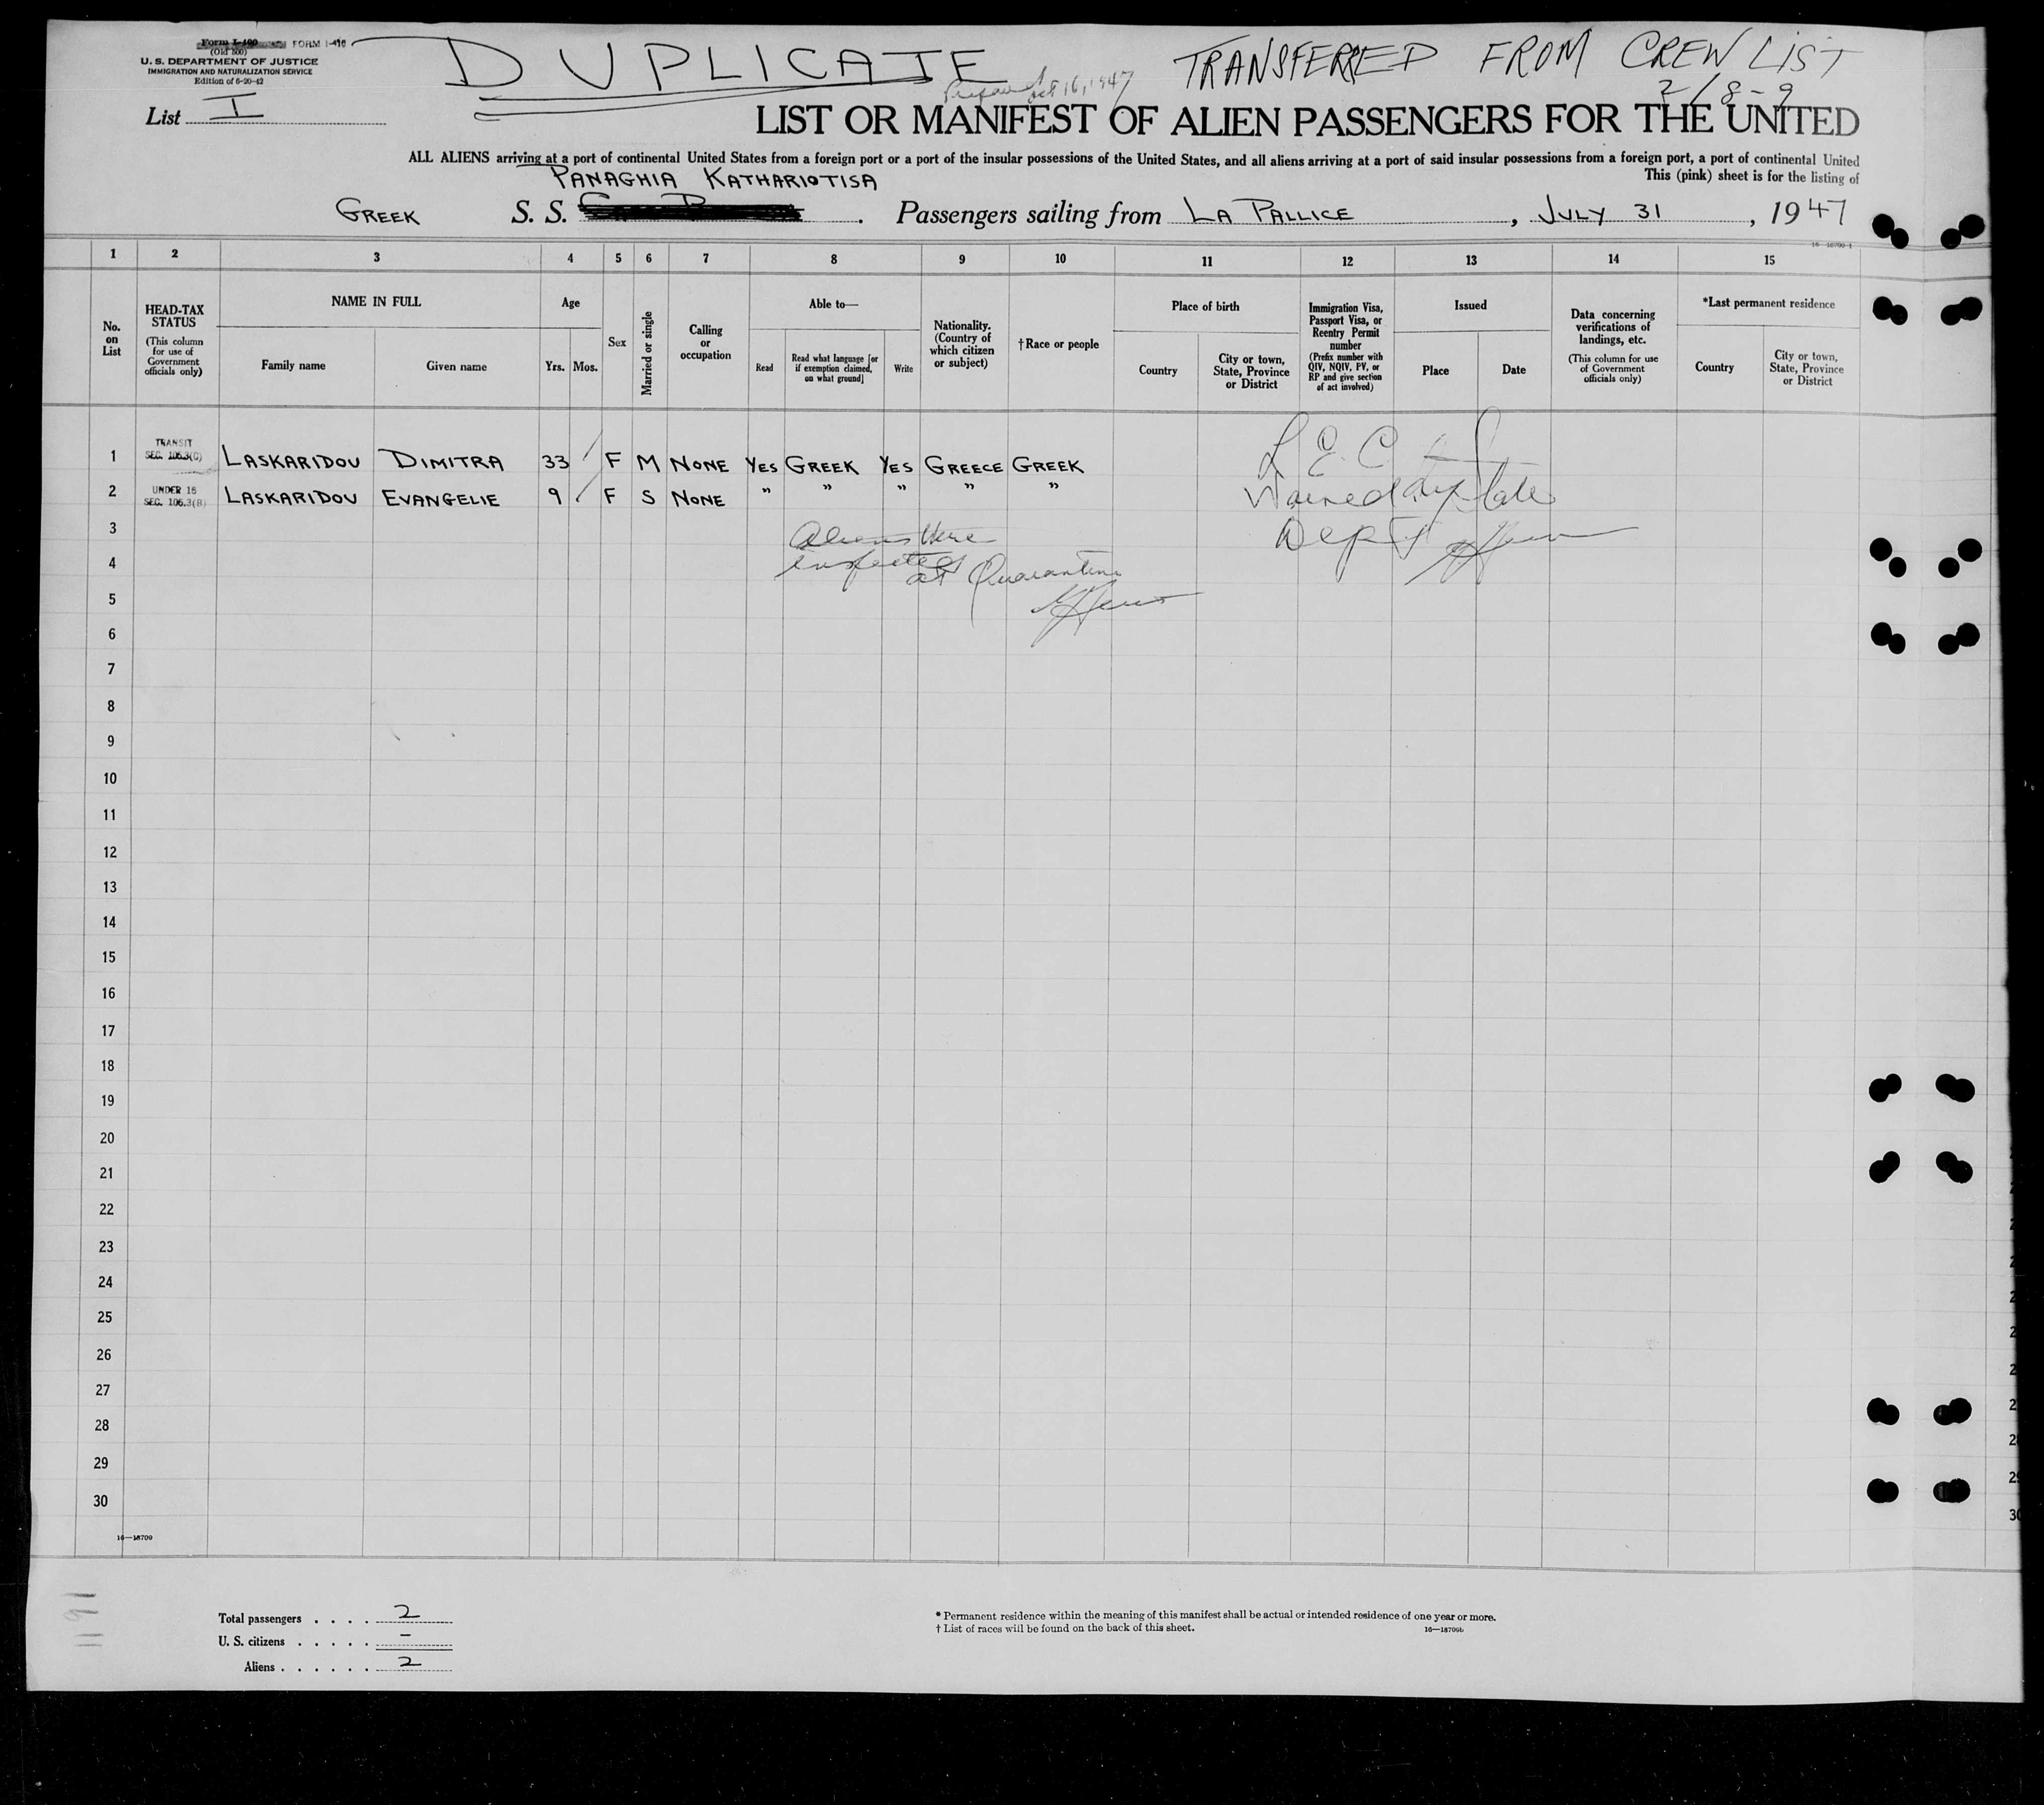 Form I-400 FORM I-416
(Old 500)
U. S. DEPARTMENT OF JUSTICE
IMMIGRATION AND NATURALIZATION SERVICE
Edition of 6-20-42
DUPLICATE
TRANSFERRED FROM CREW LIST
Prepared Oct 16, 1947
2/8-9
List I
LIST OR MANIFEST OF ALIEN PASSENGERS FOR THE UNITED
ALL ALIENS arriving at a port of continental United States from a foreign port or a port of the insular possessions of the United States, and all aliens arriving at a port of said insular possessions from a foreign port, a port of continental United
This (pink) sheet is for the listing of
PANAGHIA KATHARIOTISA
GREEK S. S. Passengers sailing from LA PALLICE, JULY 31, 1947
16—18700-1
1 2 3 4 5 6 7 8 9 10 11 12 13 14 15
No. on List
HEAD-TAX STATUS
(This column for use of Government officials only)
NAME IN FULL
Family name Given name
Age
Yrs. Mos.
Sex
Married or single
Calling or occupation
Able to—
Read
Read what language [or if exemption claimed, on what ground]
Write
Nationality. (Country of which citizen or subject)
†Race or people
Place of birth
Country
City or town, State, Province or District
Immigration Visa, Passport Visa, or Reentry Permit number
(Prefix number with QIV, NQIV, PV, or RP and give section of act involved)
Issued
Place Date
Data concerning verifications of landings, etc.
(This column for use of Government officials only)
*Last permanent residence
Country
City or town, State, Province or District
1 TRANSIT SEC. 105.3(C) LASKARIDOU DIMITRA 33 F M NONE YES GREEK YES GREECE GREEK
2 UNDER 16 SEC. 105.3(B) LASKARIDOU EVANGELIE 9 F S NONE " " " " "
L E C
Waived by State
Dept
Aliens Were
inspected
at Quarantine
3
4
5
6
7
8
9
10
11
12
13
14
15
16
17
18
19
20
21
22
23
24
25
26
27
28
29
30
16—18700
Total passengers . . . . 2
U. S. citizens . . . . . –
Aliens . . . . . . 2
* Permanent residence within the meaning of this manifest shall be actual or intended residence of one year or more.
† List of races will be found on the back of this sheet.
16—18700b